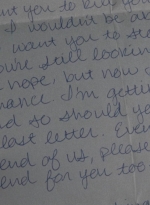 nt you to keep you
I wouldn't be ab
want you to sto
you're still lookin
hope, but now
mance. I'm gettin
d so should yo
last letter. Ever
end of us, please
end for you too